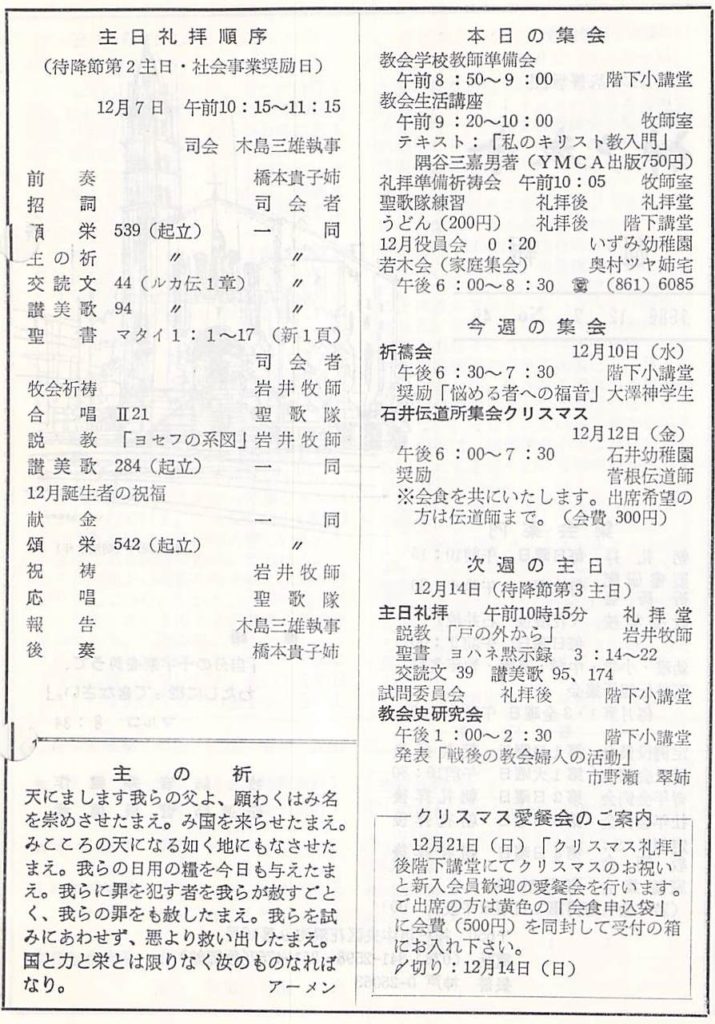 主日礼拝順序
（待降節第2主日・社会事業奨励日）
12月7日　午前10：15～11：15
司会　木島三雄執事
前奏　橋本貴子姉
招詞　司会者
頌栄　539（起立）　一同
主の祈　〃　〃
交読文　44（ルカ伝1章）　〃
讃美歌　94　〃　〃
聖書　マタイ1：1～17（新1頁）
司会者
牧会祈祷　岩井牧師
合唱　Ⅱ21　聖歌隊
説教　「ヨセフの系図」岩井牧師
讃美歌　284（起立）　一同
12月誕生者の祝福
献金　一同
頌栄　542（起立）　〃
祝祷　岩井牧師
応唱　聖歌隊
報告　木島三雄執事
後奏　橋本貴子姉
主の祈
天にまします我らの父よ、願わくはみ名
を崇めさせたまえ。み国を来らせたまえ。
みこころの天になる如く地にもなさせた
まえ。我らの日用の糧を今日も与えたま
え。我らに罪を犯す者を我らが赦すごと
く、我らの罪をも赦したまえ。我らを試
みにあわせず、悪より救い出したまえ。
国と力と栄とは限りなく汝のものなれば
なり。　アーメン
本日の集会
教会学校教師準備会
午前8：50～9：00　階下小講堂
教会生活講座
午前9：20～10：00　牧師室
テキスト：「私のキリスト教入門」
隅谷三嘉男著（YMCA出版750円）
礼拝準備祈祷会　午前10：05　牧師室
聖歌隊練習　礼拝後　礼拝堂
うどん（200円）　礼拝後　階下講堂
12月役員会　0：20　いずみ幼稚園
若木会（家庭集会）　奥村ツヤ姉宅
午後6：00～8：30　☎（861）6085
今週の集会
祈禱会　12月10日（水）
午後6：30～7：30　階下小講堂
奨励「悩める者への福音」大澤神学生
石井伝道所集会クリスマス
12月12日（金）
午後6：00～7：30　石井幼稚園
奨励　菅根伝道師
※会食を共にいたします。出席希望の
方は伝道師まで。（会費 300円）
次週の主日
12月14日（待降節第3主日）
主日礼拝　午前10時15分　礼拝堂
説教「戸の外から」　岩井牧師
聖書　ヨハネ黙示録　3：14～22
交読文 39　讃美歌 95、174
試問委員会　礼拝後　階下小講堂
教会史研究会
午後1：00～2：30　階下小講堂
発表「戦後の教会婦人の活動」
市野瀬　翠姉
クリスマス愛餐会のご案内
12月21日（日）「クリスマス礼拝」
後階下講堂にてクリスマスのお祝い
と新入会員歓迎の愛餐会を行います。
ご出席の方は黄色の「会食申込袋」
に会費（500円）を同封して受付の箱
にお入れ下さい。
〆切り：12月14日（日）